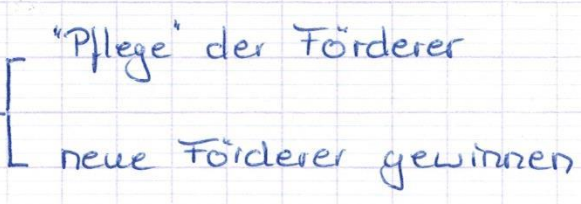 "Pflege" der Förderer
neue Förderer gewinnen